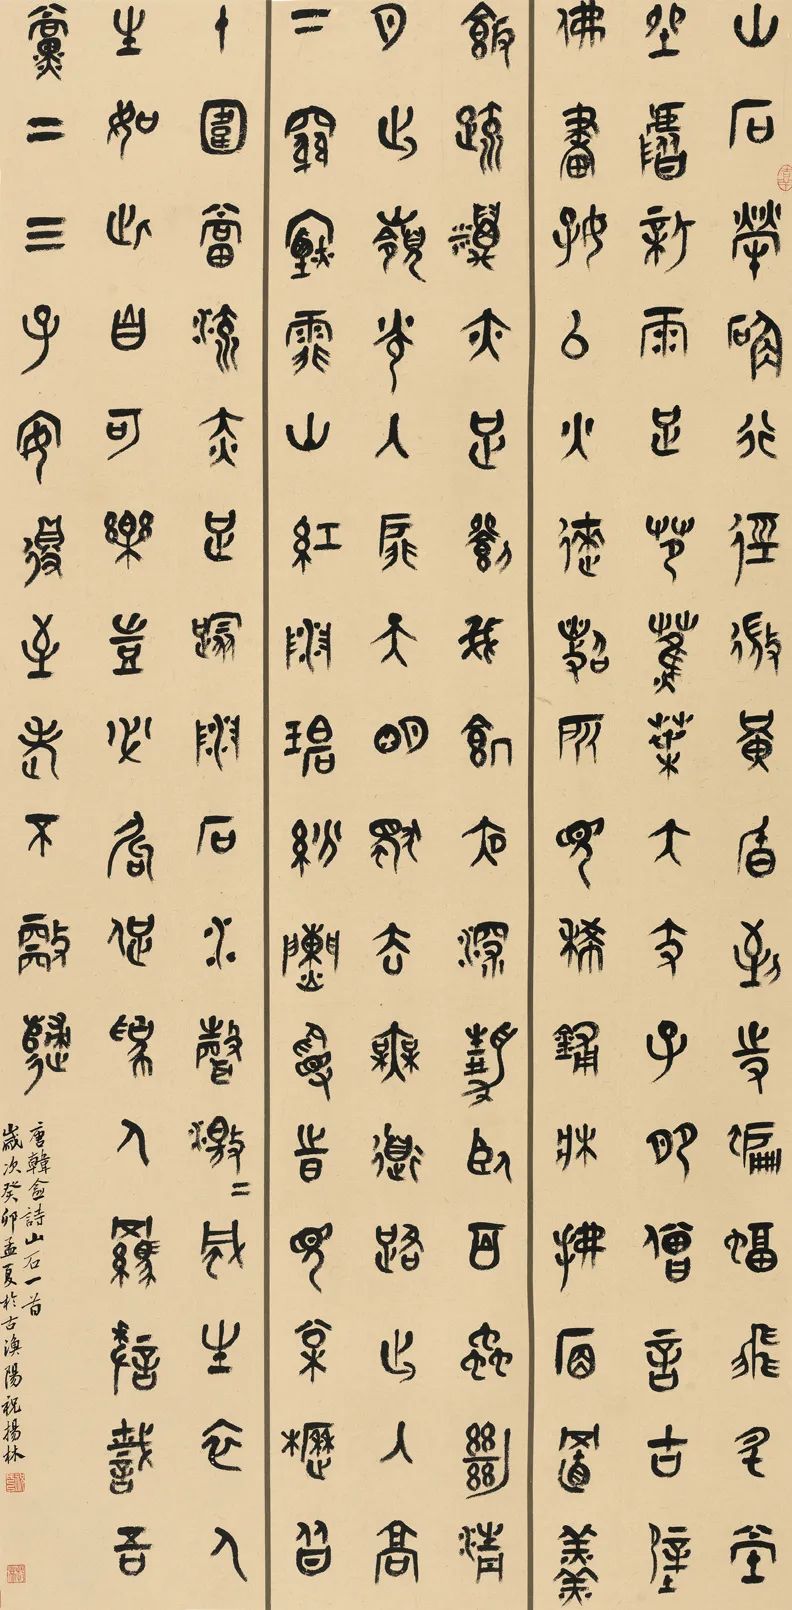 山石犖确行徑微黃昏到寺蝙蝠飛升堂
坐階新雨足芭蕉葉大支子肥僧言古壁
佛畫好以火來照所見稀鋪床拂席置羹
飯疏糲亦足飽我飢夜深靜臥百蟲絕清
月出嶺光入扉天明獨去無道路出入高
下窮煙霏山紅澗碧紛爛漫時見松櫪皆
十圍當流赤足蹋澗石水聲激〻風生衣人
生如此自可樂豈必局促為人鞿嗟哉吾
黨二三子安得至老不更歸
唐韓愈詩山石一首
歲次癸卯孟夏於古漁陽祝揚林